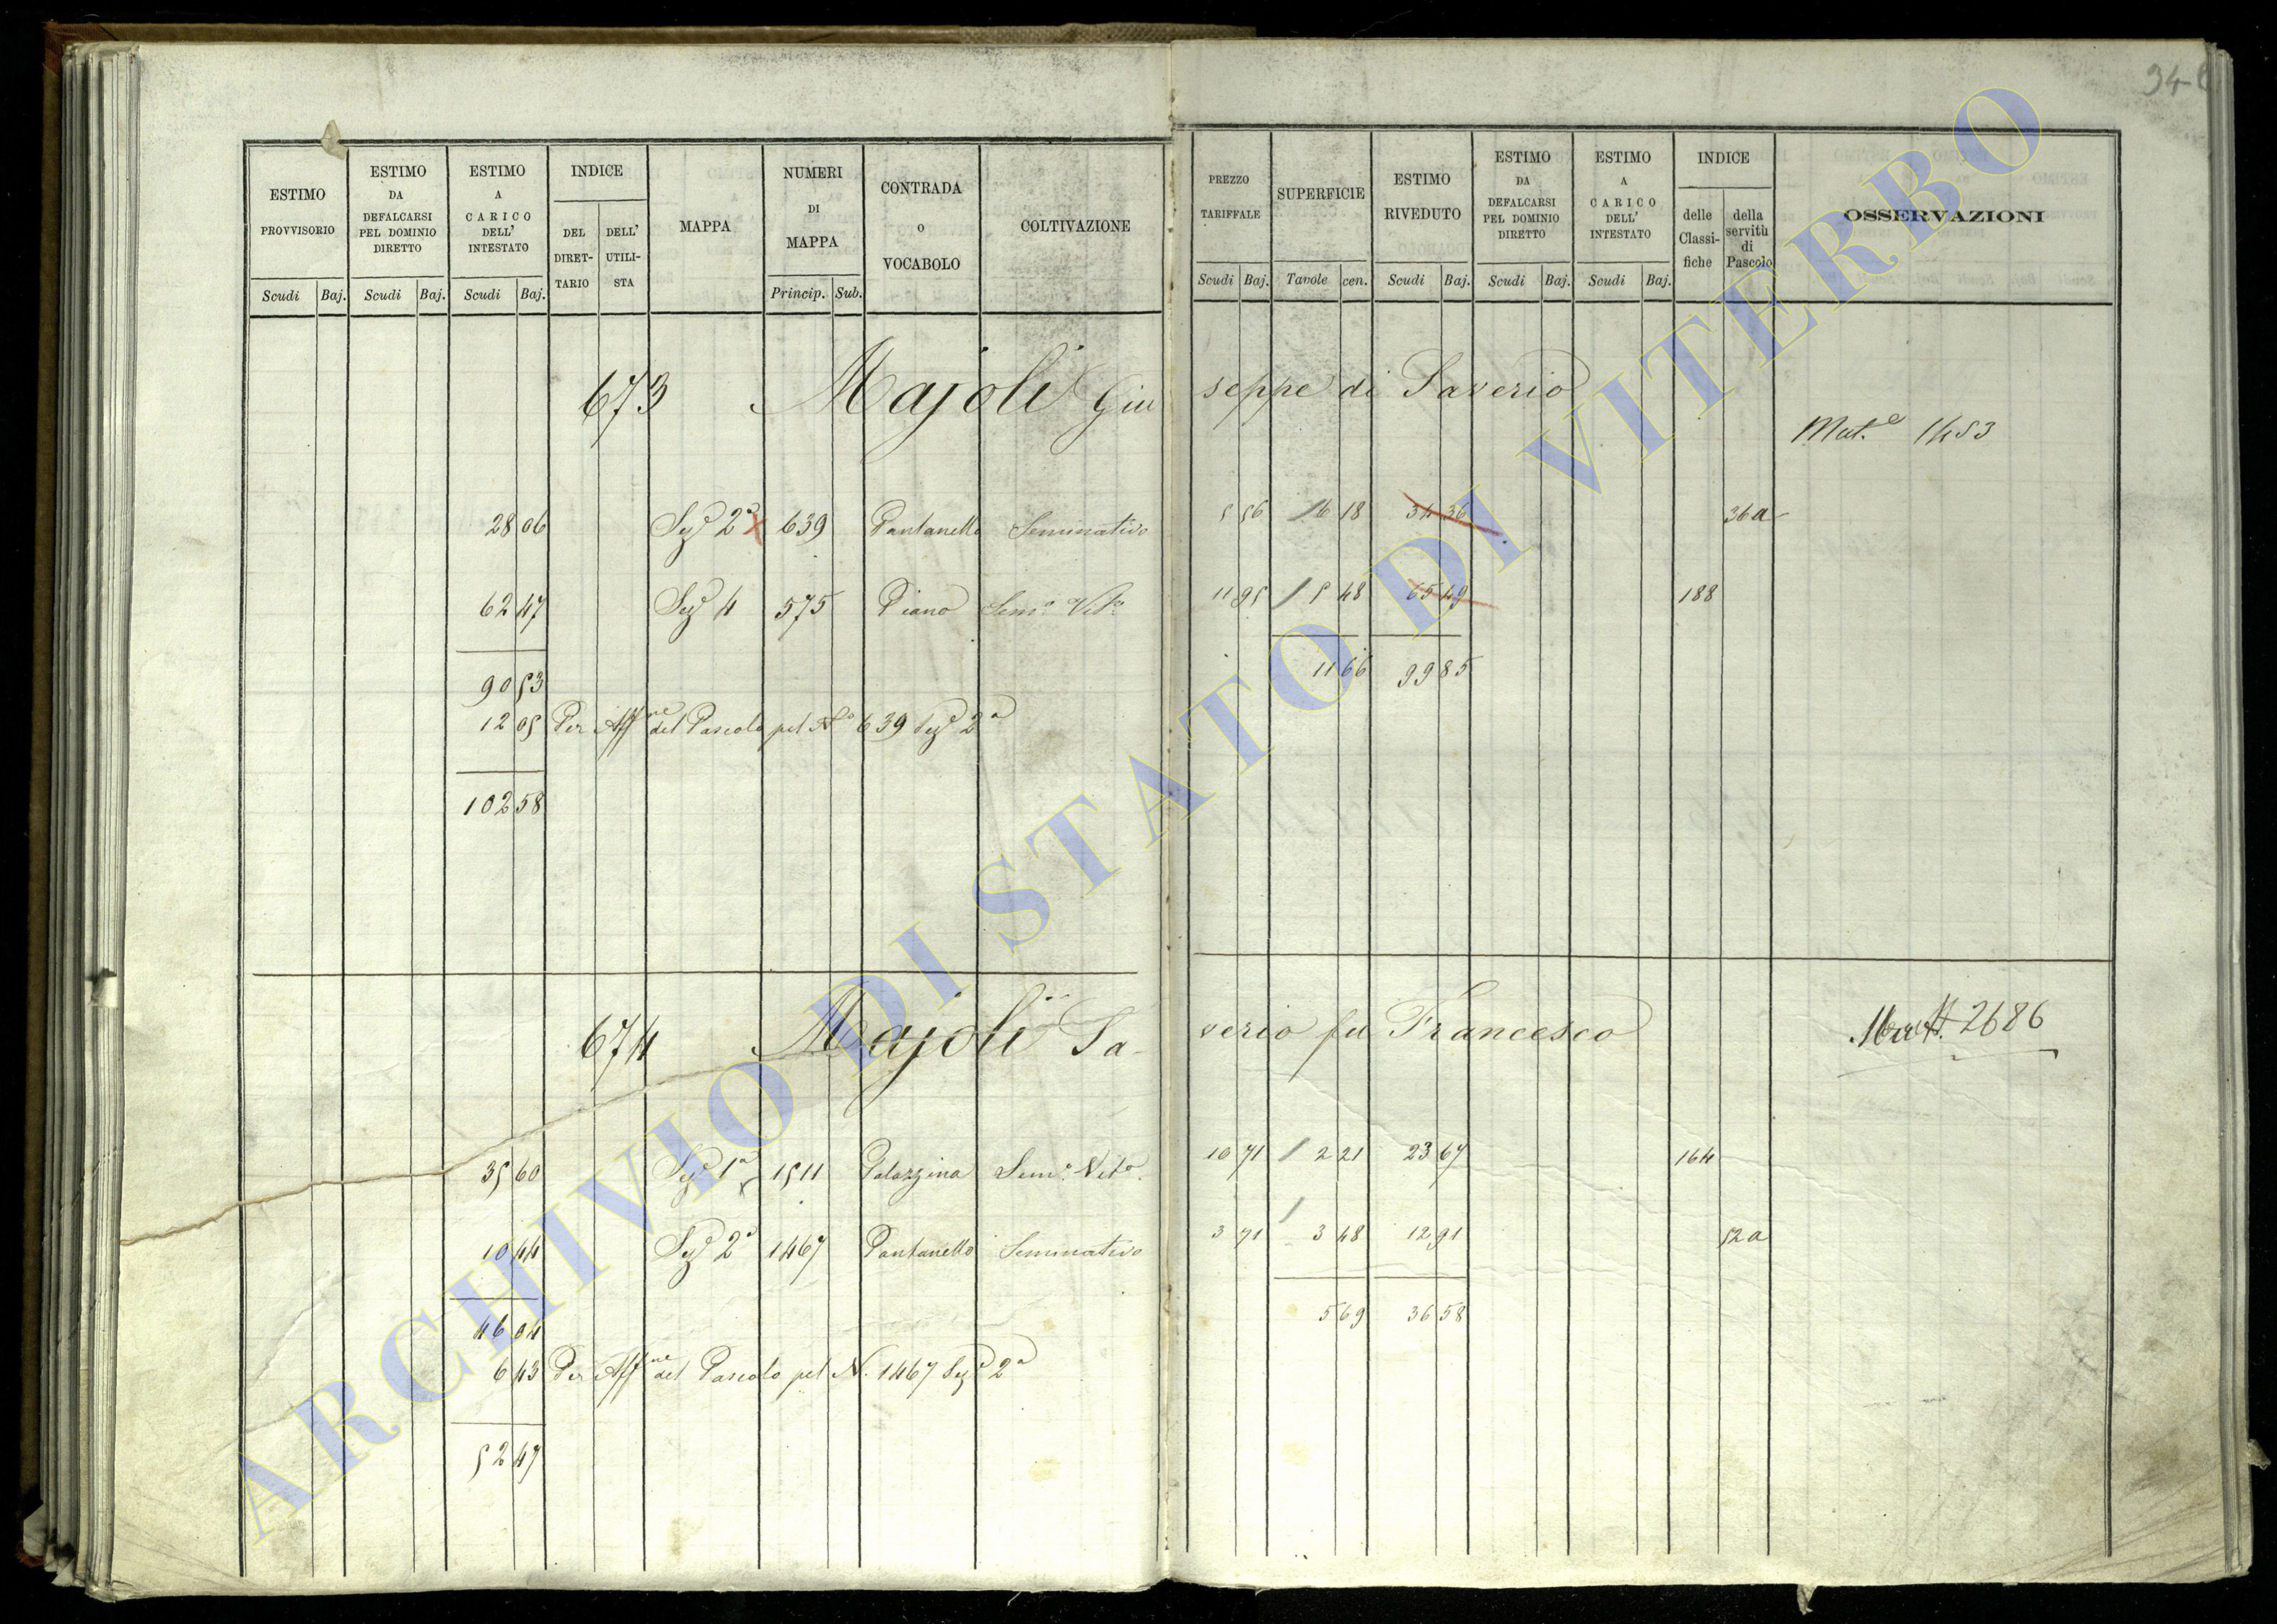 34
ESTIMO PROVVISORIO Scudi Baj.
ESTIMO DA DEFALCARSI PEL DOMINIO DIRETTO Scudi Baj.
ESTIMO A CARICO DELL' INTESTATO Scudi Baj.
INDICE DEL DIRETTARIO DELL' UTILISTA
MAPPA
NUMERI DI MAPPA Princip. Sub.
CONTRADA O VOCABOLO
COLTIVAZIONE
PREZZO TARIFFALE Scudi Baj.
SUPERFICIE Tavole cen.
ESTIMO RIVEDUTO Scudi Baj.
ESTIMO DA DEFALCARSI PEL DOMINIO DIRETTO Scudi Baj.
ESTIMO A CARICO DELL' INTESTATO Scudi Baj.
INDICE delle Classifiche della servitù di Pascolo
OSSERVAZIONI
673 Majoli Giuseppe di Saverio
Mut.e 1453
28 06 Sez.e 2a x 639 Pantanello Seminativo 5 56 / 6 18 34 36 36a
62 47 Sez.e 4 575 Piano Sem.o Vit.o 11 95 / 5 48 65 49 188
90 53 11 66 99 85
12 05 Per Aff.ne del Pascolo pel N.o 639 Sez.e 2a
102 58
674 Majoli Saverio fu Francesco
2686
35 60 Sez.e 1a 1511 Palazzina Sem.o Vit.o 10 71 / 2 21 23 67 164
10 44 Sez.e 2a 1467 Pantanello Seminativo 3 71 / 3 48 12 91 52a
46 04 5 69 36 58
6 43 Per Aff.ne del Pascolo pel N. 1467 Sez.e 2a
52 47
ARCHIVIO DI STATO DI VITERBO